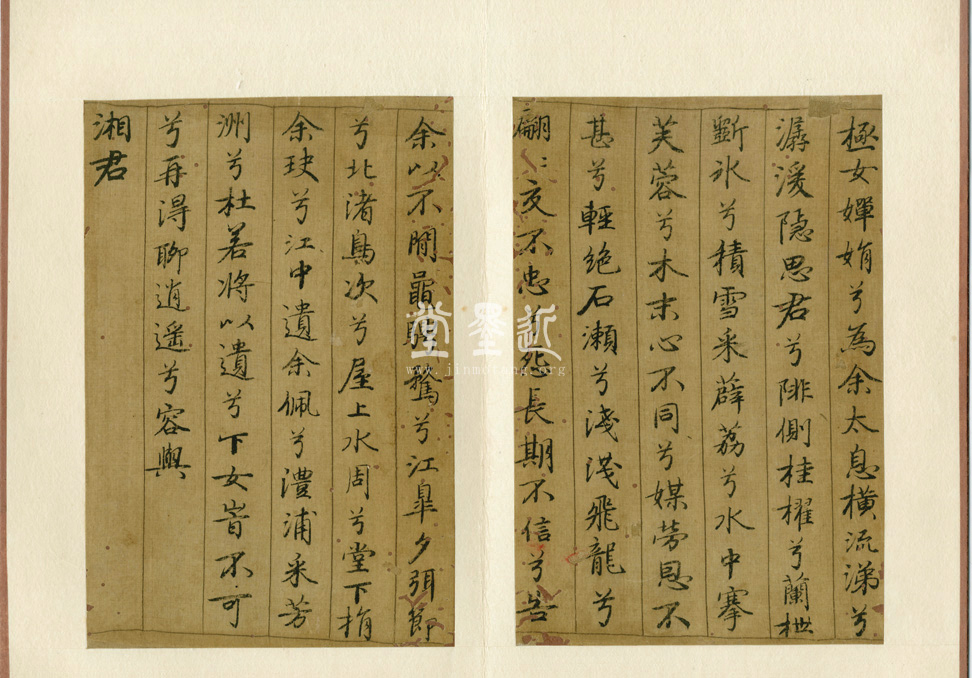 極女嬋媍兮為余太息橫流涕兮
潺湲隐思君兮陫側桂櫂兮蘭枻
斲氷兮積雪采薜荔兮水中搴
芙蓉兮木末心不同兮媒劳恩不
甚兮輕絶石瀬兮淺淺飛龍兮
翩〻交不忠兮怨長期不信兮告
余以不閒鼂騁騖兮江臯夕弭節
兮北渚鳥次兮屋上水周兮堂下捐
余玦兮江中遺余佩兮澧浦采芳
洲兮杜若将以遺兮下女旹不可
兮再淂聊逍遥兮容與
湘君
近墨堂
www.jinmotang.org